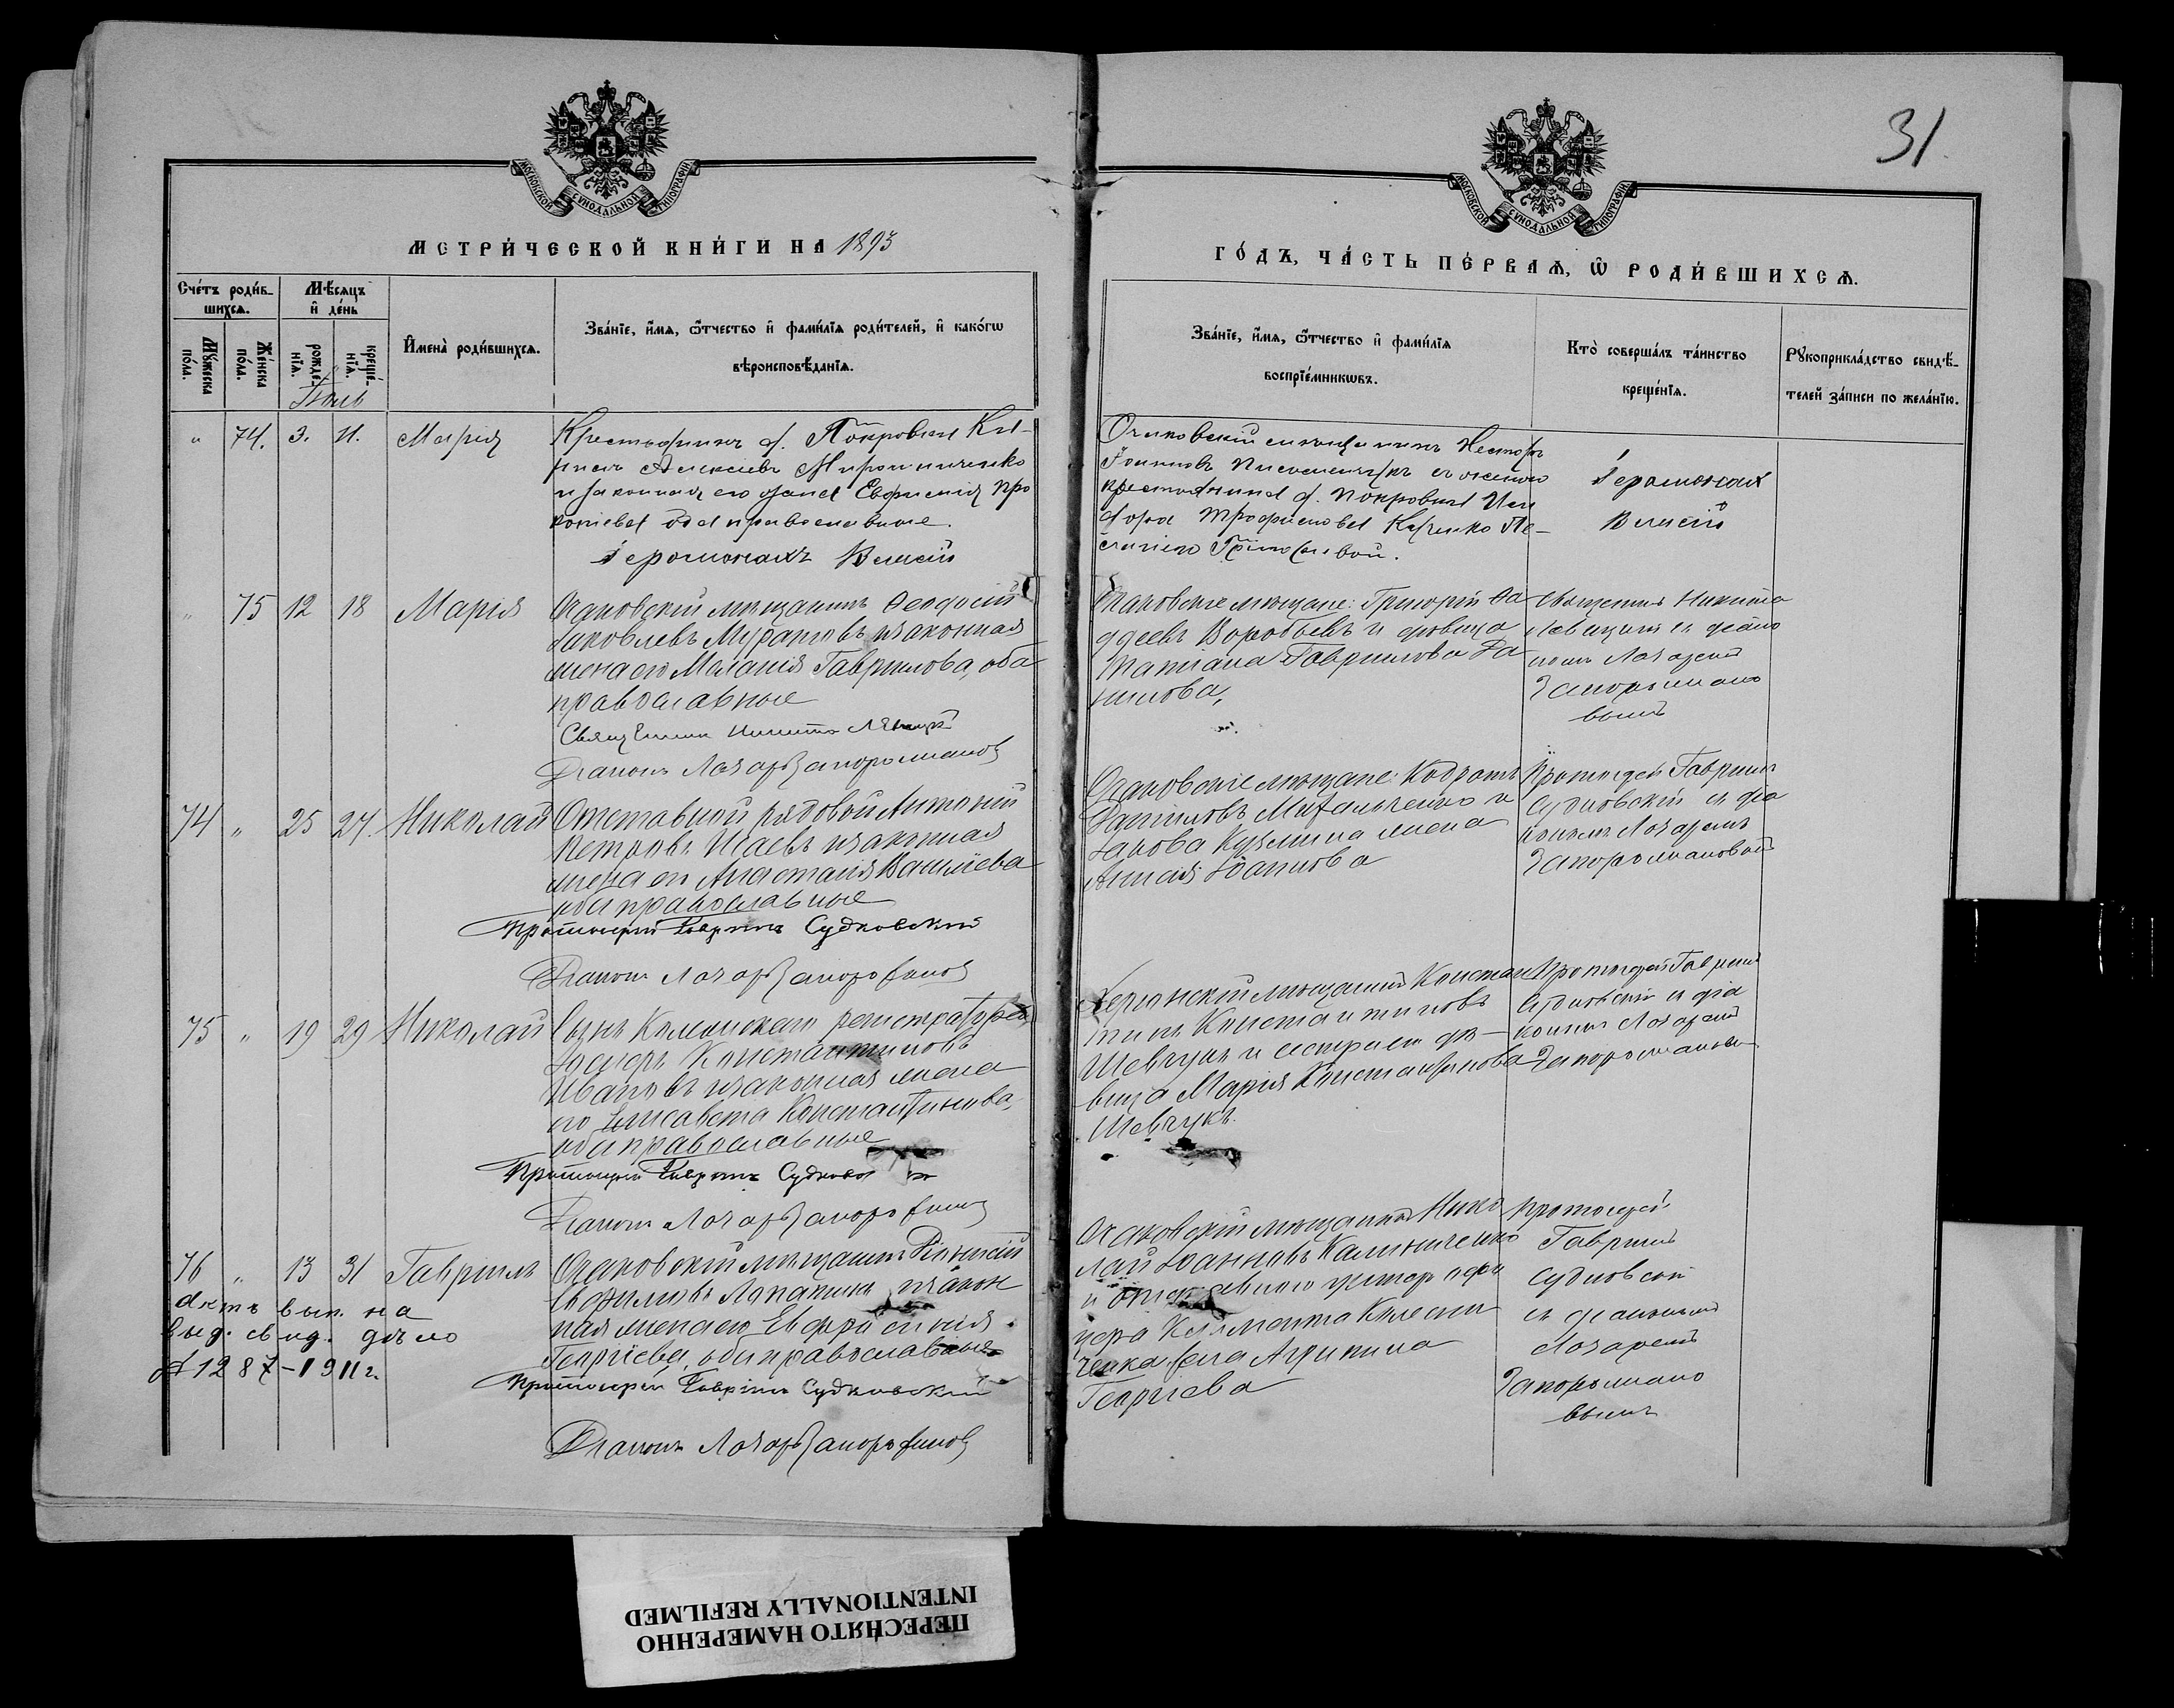 31.
МОСКОВСКОЙ СѴНОДАЛЬНОЙ ТИПОГРАФІИ
МОСКОВСКОЙ СѴНОДАЛЬНОЙ ТИПОГРАФІИ
МЕТРИ́ЧЕСКОЙ КНИ́ГИ НА 1893
ГО́ДЪ, ЧА́СТЬ ПЕ́РВАѦ, Ѡ РОДИ́ВШИХСѦ.
Сче́тъ роди́вшихсѧ.
Мꙋ́жеска по́ла.
Же́нска по́ла.
Мѣ́сѧцъ и де́нь
рожде́нїѧ.
креще́нїѧ.
Имена̀ роди́вшихсѧ.
Зва́нїе, и́мѧ, ѻ҆́тчество и фами́лїѧ роди́телей, и како́гѡ
вѣроисповѣ́данїѧ.
Зва́нїе, и́мѧ, ѻ҆́тчество и фами́лїѧ
воспрїе́мникѡвъ.
Кто̀ соверша́лъ та́инство
креще́нїѧ.
Рꙋкоприкла́дство свидѣ́-
телей за́писи по жела́нїю.
Іюль
" 74. 3. 11. Марія
Крестьянинъ д. Покровки Ки-
риллъ Алексіевъ Мирошниченко
и законная его жена Евфимія Про
копіева оба православные.
Іеромонахъ
Очаковскій мѣщанинъ Несторъ
Іоанновъ
крестьянина д. Покровки
дора Трофимова
Іеромонахъ
" 75 12 18 Марія
Очаковскій мѣщанинъ Ѳеодосій
Іаковлевъ Муратовъ и законная
жена его Меланія Гаврилова, оба
православные
Священник Никита Левицкій
Діаконъ Лазарь Запорожановъ
Очаковскіе мѣщане: Григорій Ѳа
ддеевъ Воробьевъ и дѣвица
Татіана Гаврилова Да
нилова,
Священникъ Никита
Левицкій съ діако
номъ Лазаремъ
Запорожано
вымъ
74 " 25 27. Николай
Отставной рядовой Антоній
Петровъ Исаевъ и законная
жена его Анастасія Василіева
оба православные
Протоіерей Гавріилъ Судковскій
Діаконъ Лазарь Запорожановъ
Очаковскіе мѣщане: Кодратъ
Даниловъ Михальченко и
Іакова Кузмина жена
Іоаннова
Протоіерей Гавріилъ
Судковскій съ діа
кономъ Лазаремъ
Запорожановымъ
75 " 19 29 Николай
Сынъ Коллежскаго регистратора
Константиновъ
Ивановъ и законная жена
его Елисавета Константинова,
оба православные
Протоіерей Гавріилъ Судковскій
Діаконъ Лазарь Запорожановъ
Херсонскій мѣщанинъ Констан
тинъ Константиновъ
Шевчукъ и сестра его дѣ-
вица Марія Константинова
Шевчукъ.
Протоіерей Гавріилъ
Судковскій съ діа
кономъ Лазаремъ
Запорожановы
76 " 13 31 Гавріилъ
Очаковскій мѣщанинъ Діонисій
Лопатинъ и закон
ная жена его Евфросинія
Георгіева, оба православные
Протоіерей Гавріилъ Судковскій
Діаконъ Лазарь Запорожановъ
Очаковскій мѣщанинъ Нико
лай Іоанновъ Калиниченко
и отставного унтеръ офи
цера Климента Колесни
ченка жена Агрипина
Георгіева
Протоіерей
Гавріилъ
Судковскій
съ діакономъ
Лазаремъ
Запорожано
вымъ
дѣло
№ 1287-1911 г.
ПЕРЕСНЯТО НАМЕРЕННО
INTENTIONALLY REFILMED